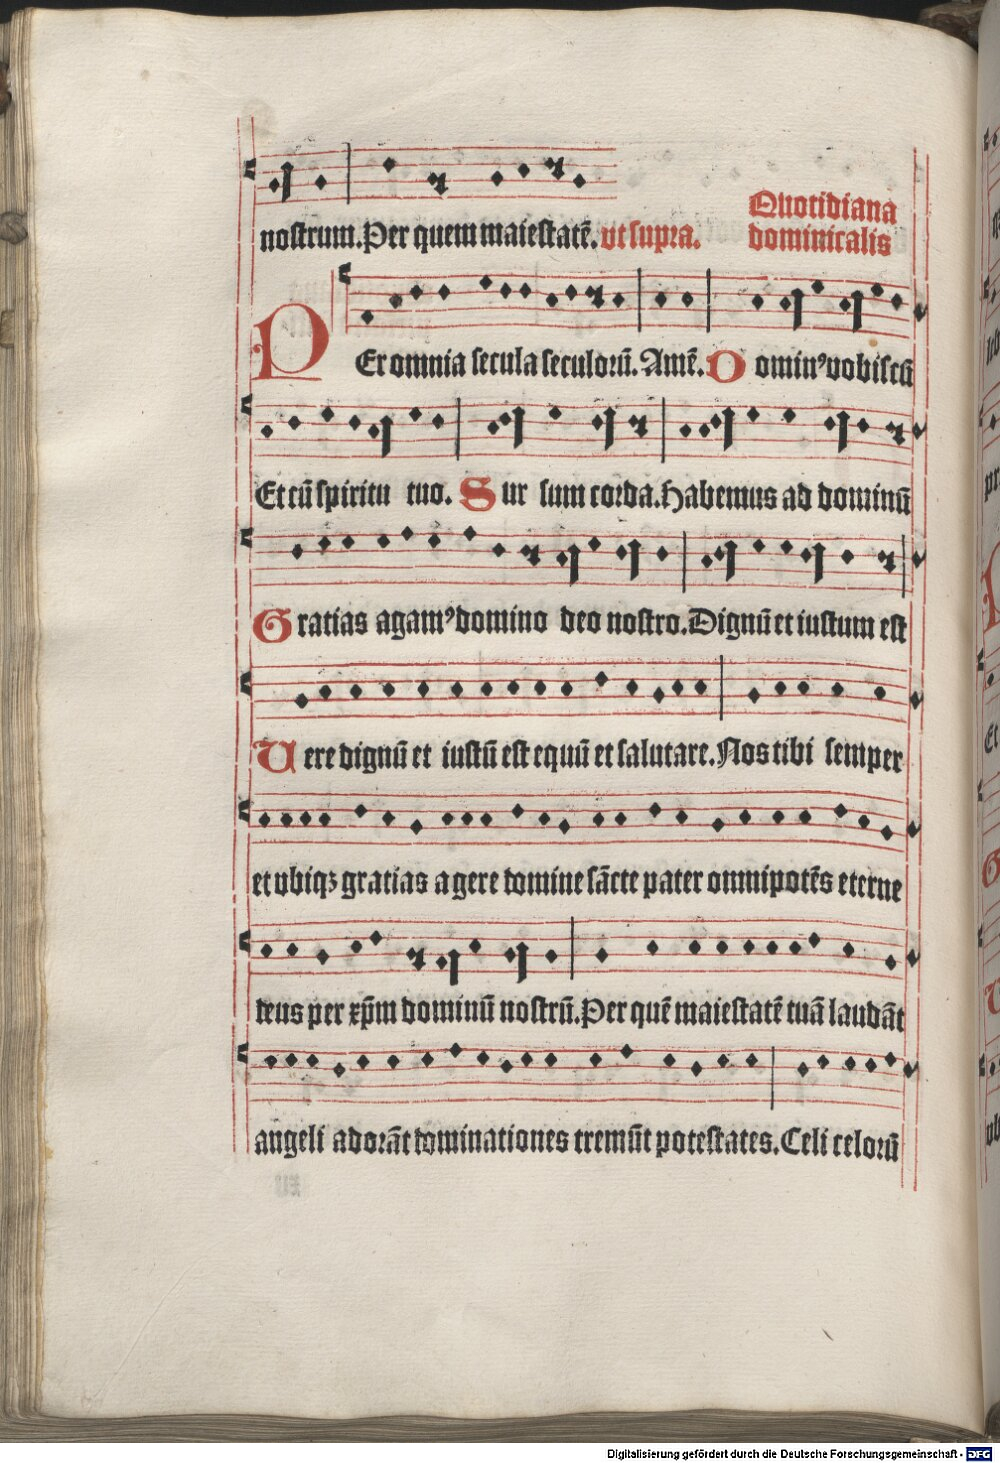 nostrum. Per quem maiestatē. vt supra.
Quotidiana
dominicalis
PEr omnia secula seculorū. Amē. Dominꝰ vobiscū
Et cū spiritu tuo. Sur sum corda. Habemus ad dominū
Gratias agamꝰ domino deo nostro. Dignū et iustum est
Uere dignū et iustū est equū et salutare. Nos tibi semper
et vbiqꝫ gratias agere domine sācte pater omnipotēs eterne
deus per xp̄m dominū nostrū. Per quē maiestatē tuā laudāt
angeli adorāt dominationes tremūt potestates. Celi celorū
Digitalisierung gefördert durch die Deutsche Forschungsgemeinschaft - DFG